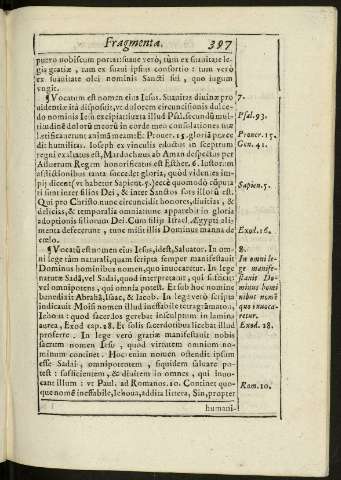 Fragmenta. 397
puero nobiscum portat: suaue verò, tùm ex suauitate le-
gis gratiæ, tum ex suaui ipsius consortio: tum verò
ex suauitate olei nominis Sancti sui, quo iugum
vngit.
¶ Vocatum est nomen eius Iesus. Suauitas diuinæ pro 7.
uidentiæ ità disposuit, vt dolorem circuncisionis dulce-
do nominis Iesu exciperet iuxta illud Psal. secundū mul- Psal. 93.
titudinē dolorū meorū in corde meo consolationes tuæ
lætificauerunt animã meam. Et Prouer. 15. gloriã præce Prouer. 15.
dit humilitas. Ioseph ex vinculis eductus in sceptrum Gen. 41.
regni exaltatus est, Mardochæus ab Aman despectus per
Assuerum Regem honorificatus est Esther. 6. Iustorum
afflictionibus tanta succedet gloria, quòd videntes im-
pij dicent (vt habetur Sapient. 5.) ecce quomodò cõputa Sapien. 5.
ti sunt inter filios Dei, & inter Sanctos sors illorū est.
Qui pro Christo nunc circuncidit honores, diuitias, &
delicias, & temporalia omnia tunc apparebit in gloria
adoptionis filiorum Dei. Cum filijs Israel Ægypti ali-
menta defecerunt, tunc misit illis Dominus manna de Exod. 16.
cœlo.
¶ Vocatū est nomen eius Iesus, idest, Saluator. In om- 8.
ni lege tàm naturali, quàm scripta semper manifestauit In omni le-
Dominus hominibus nomen, quo inuocaretur. In lege ge manife-
naturæ Sadâ, vel Sadai, quod interpretatur, qui sufficit: stauit Do-
vel omnipotens, qui omnia potest. Et sub hoc nomine minus homi
benedixit Abrahã, Isaac, & Iacob. In lege verò scripta nibus nomē
indicauit Moisi nomen illud ineffabile tetragrãmatō, quo inuoca-
Iehoua: quod sacerdos gerebat insculptum in lamina retur.
aurea, Exod cap. 28. Et solis sacerdotibus licebat illud Exod. 28.
proferre. In lege verò gratiæ manifestauit nobis
sacrum nomen Iesu, quod virtutem omnium no-
minum continet. Hoc enim nomen ostendit ipsum
esse Sadai, omnipotentem, siquidem saluare po-
test: sufficientem, & diuitem in omnes, qui inuo-
cant illum: vt Paul. ad Romanos. 10. Continet quo- Rom. 10.
que nomē ineffabile, Iehoua, addita littera, Sin, propter
humani-